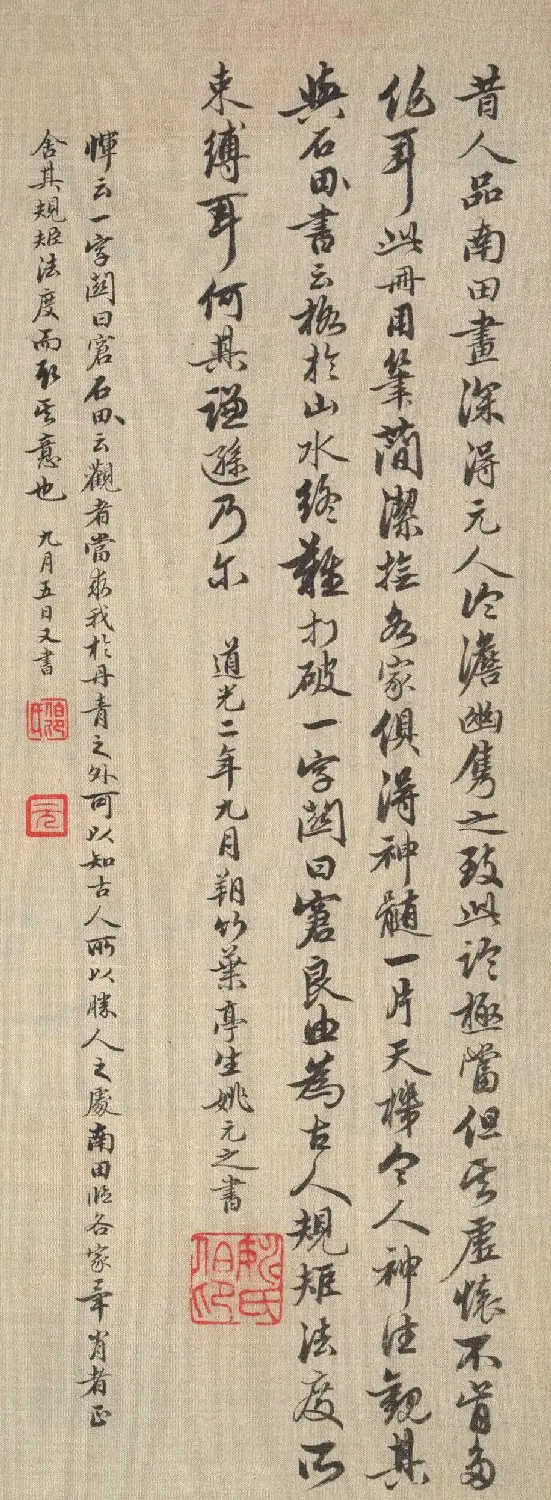 昔人品南田畫深得元人冷澹幽雋之致此論極當但其虛懷不肯多
作耳此冊用筆簡潔撫各家俱得神髓一片天機令人神往觀其
與石田書云格於山水終難打破一字關曰窘良由為古人規矩法度所
束縛耳何其謙遜乃尔 道光二年九月朔竹葉亭生姚元之書
惲云一字關曰窘石田云觀者當求我於丹青之外可以知古人所以勝人之處南田臨各家肖者正
舍其規矩法度而取其意也 九月五日又書
姚氏伯印
元